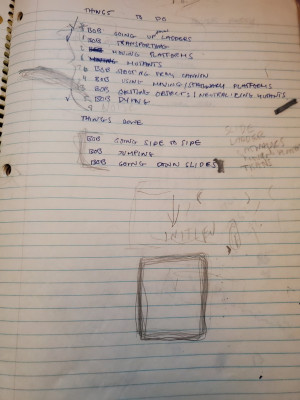 THINGS TO DO
BOB GOING UP LADDERS
BOB TRANSPORTING
MOVING PLATFORMS
MUTANTS
BOB SHOOTING FROM CANNON
BOB USING MOVING/STATIONARY PLATFORMS
BOB GETTING OBJECTS/NEUTRALIZING MUTANTS
BOB DYING
THINGS DONE
BOB GOING SIDE TO SIDE
BOB JUMPING
BOB GOING DOWN SLIDES